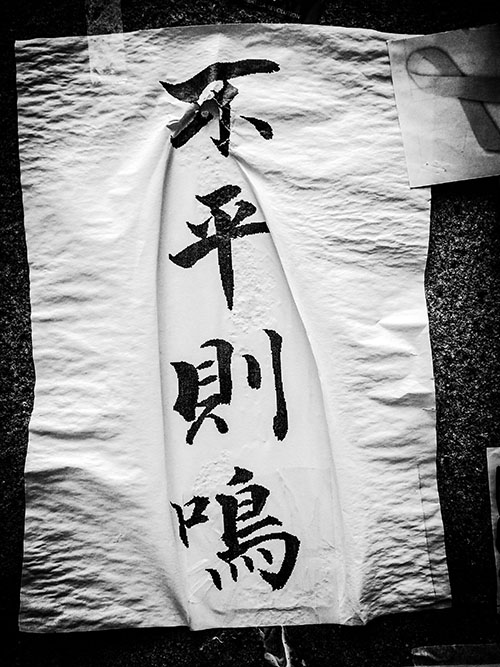 不平則鳴